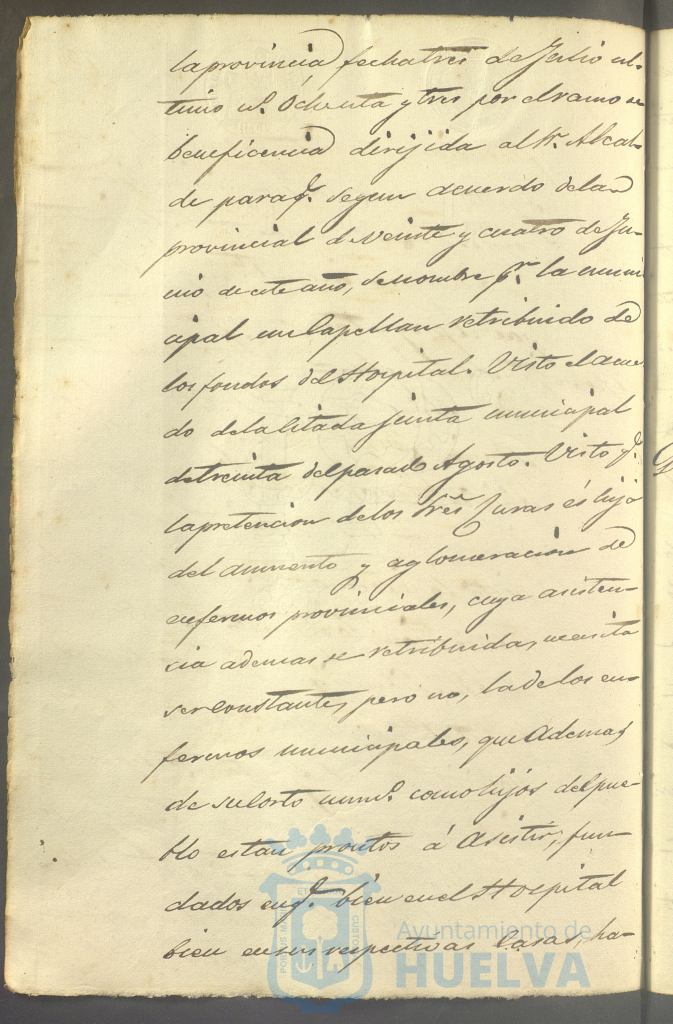 la provincia fecha tres de Julio ul-
timo nº. Ochenta y tres por el ramo de
beneficencia dirijida al Sr. Alcal-
de para q. segun acuerdo de la
provincial de veinte y cuatro de Ju-
nio de este año, se nombre pr. la munici
cipal un Capellan retribuido de
los fondos del Hospital. Visto el acuer
do de la citada Junta municipal
de treinta del pasado Agosto. Visto q.
la pretencion de los Sres. Curas és hija
del aumento y aglomeracion de
enfermos provinciales, cuya asisten-
cia ademas se retribuida, necesita
ser constante, pero no, la de los en-
fermos municipales, que Ademas
de su corto numo. como hijos del pue-
blo estan prontos á Asistir, fun-
dados en q. bien en el Hospital
bien en sus respectivas Casas, ha-
Ayuntamiento de
HUELVA
PORTUS MARIS ET TERRE CUSTODIA